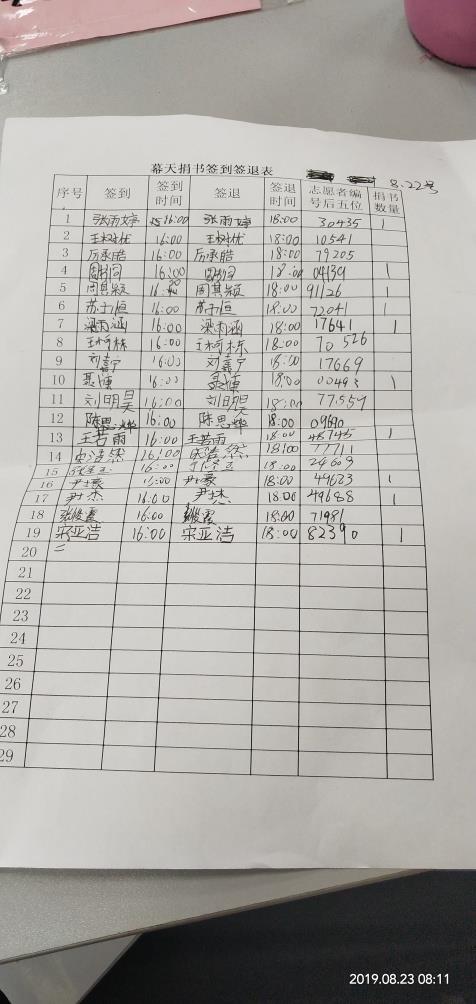 幕天捐书签到签退表
8.22号
序号 签到 签到时间 签退 签退时间 志愿者编号后五位 捐书数量
1 张雨婷 16:00 张雨婷 18:00 30435 1
2 王树优 16:00 王树优 18:00 10541
3 厉承皓 16:00 厉承皓 18:00 79205
4 16:00 18:00 04139 1
5 周其颖 周其颖 18:00 91126
6 苏子恒 16:00 苏子恒 18:00 72041
7 梁雨涵 16:00 梁雨涵 18:00 17641 1
8 王柯栋 16:00 王柯栋 18:00 70526
9 刘嘉宁 16:00 刘嘉宁 18:00 17669
10 16:00 18:00 00493 1
11 刘明昊 16:00 刘明昊 18:00 77559
12 陈思烨 16:00 陈思烨 18:00
13 王若雨 16:00 王若雨 18:00 48745 1
14 16:00 18:00 77711
15 16:00 18:00 24609
16 尹士豪 16:00 尹士豪 18:00 49623 1
17 尹杰 16:00 尹杰 18:00 49688 1
18 张俊震 16:00 18:00 71981
19 宋亚洁 16:00 宋亚洁 18:00 82390 1
20
21
22
23
24
25
26
27
28
29
2019.08.23 08:11